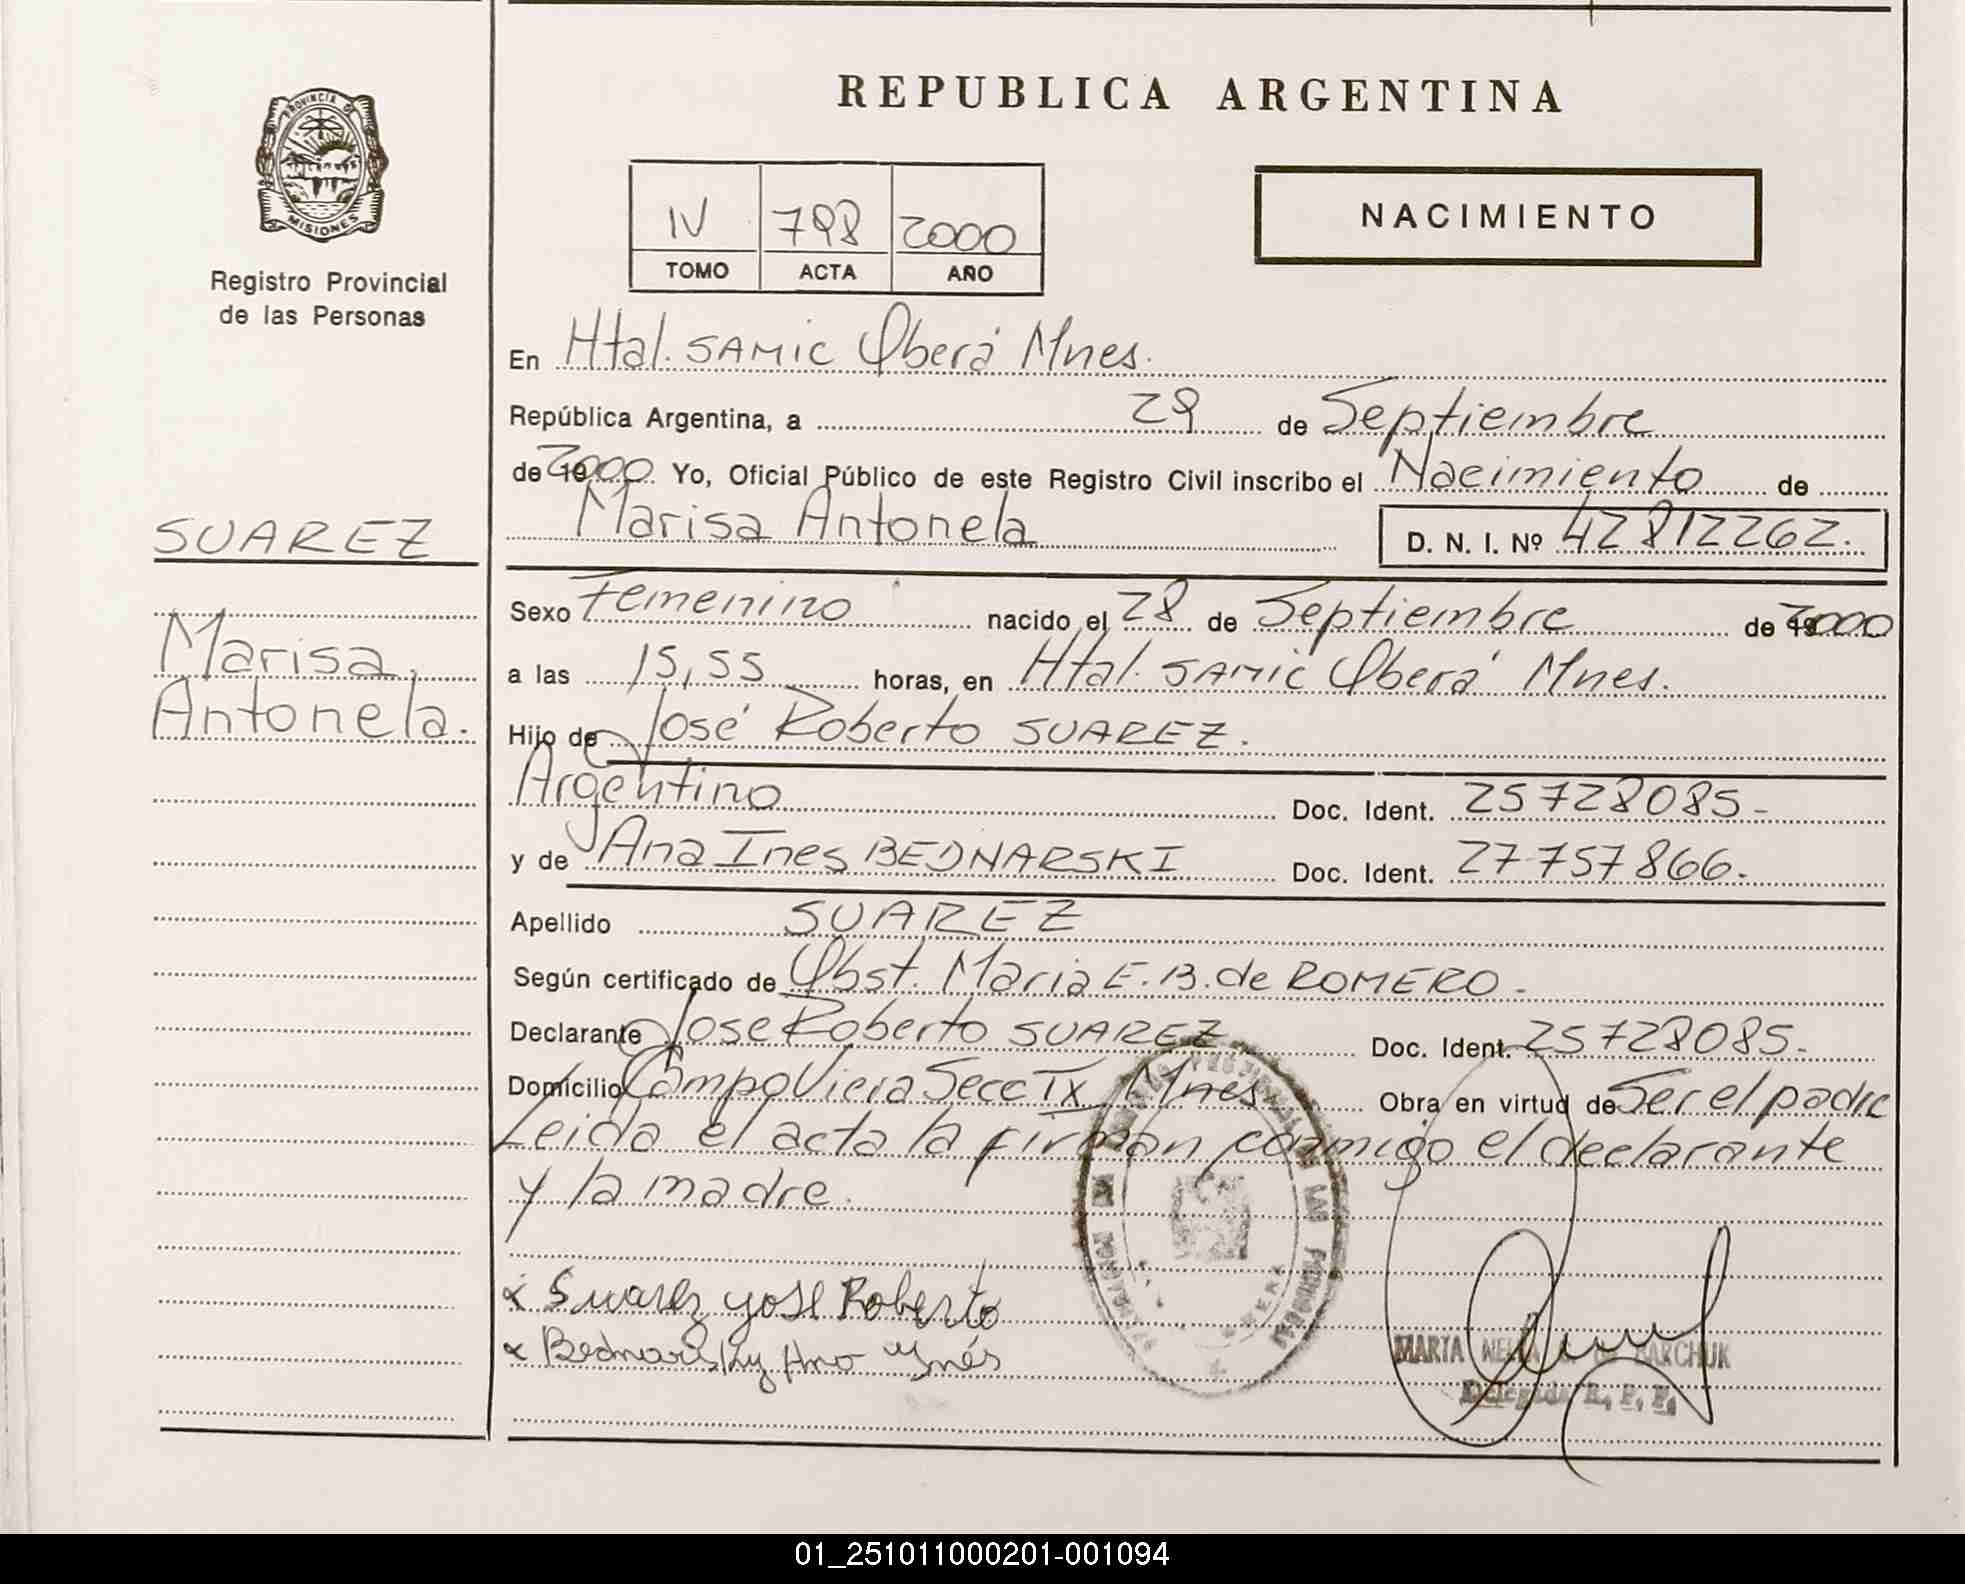 REPUBLICA ARGENTINA
PROVINCIA DE
MISIONES
Registro Provincial
de las Personas
IV 798 2000
TOMO ACTA AÑO
NACIMIENTO
En Htal. SAMIC Oberá Mnes.
República Argentina, a 29 de Septiembre
de 2000 Yo, Oficial Público de este Registro Civil inscribo el Nacimiento de
Marisa Antonela D. N. I. Nº 42812262.
SUAREZ
Marisa
Antonela.
Sexo Femenino nacido el 28 de Septiembre de 2000
a las 15,55 horas, en Htal. SAMIC Oberá Mnes.
Hijo de José Roberto SUAREZ.
Argentino Doc. Ident. 25728085-
y de Ana Ines BEDNARSKI Doc. Ident. 27757866.
Apellido SUAREZ
Según certificado de Obst. Maria E. B. de ROMERO.
Declarante Jose Roberto SUAREZ Doc. Ident. 25728085.
Domicilio Campo Viera Secc IX Mnes Obra en virtud de Ser el padre
Leida el acta la firman conmigo el declarante
y la madre.
Suarez yose Roberto
Bednarisky Ana Ynés
MARTA BARCHUK
Delegada R. P. P.
01_251011000201-001094